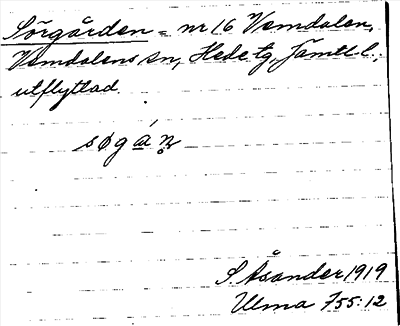 Sörgården = nr 16 Vemdalen,
Vemdalens sn, Hede tg, Jämtl. l.;
utflyttad.
søgá̱n̥
S. Åsander 1919
Ulma 755:12